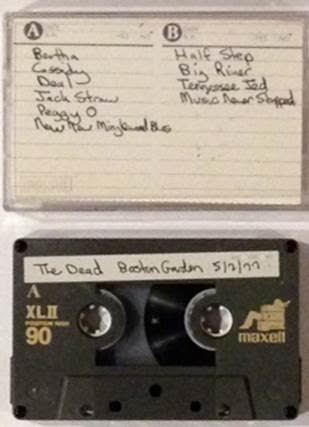 A
B
Bertha
Cassidy
Deal
Jack Straw
Peggy O
New New Minglewood Blues
Half Step
Big River
Tennessee Jed
Music Never Stopped
The Dead Boston Garden 5/7/77
A
XLII
POSITION HIGH
90
maxell